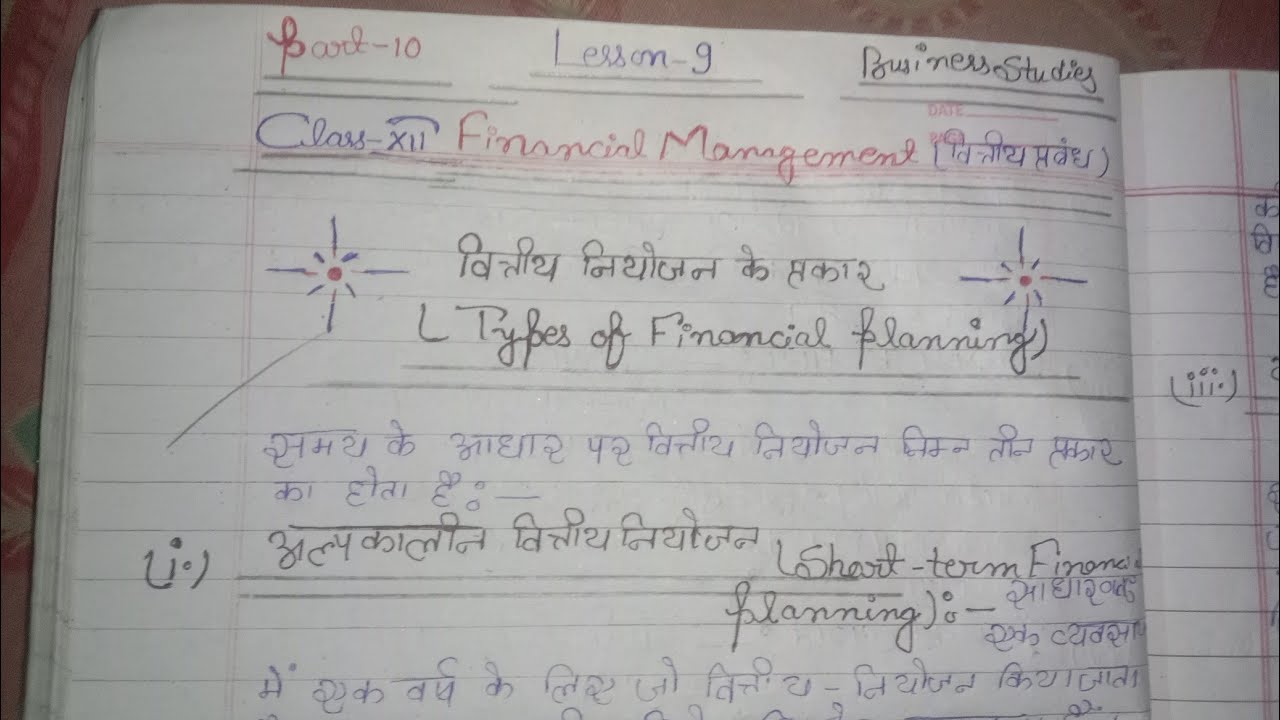 Part-10 Lesson-9 Business Studies
DATE
Class-XII Financial Management (वित्तीय प्रबंध)
वित्तीय नियोजन के प्रकार
(Types of Financial planning)
समय के आधार पर वित्तीय नियोजन निम्न तीन प्रकार
का होता है:—
(i.) अल्पकालीन वित्तीय नियोजन (Short-term Financi
planning):— साधारणतः
एक व्यवसा
में एक वर्ष के लिए जो वित्तीय-नियोजन किया जाता
(iii.)